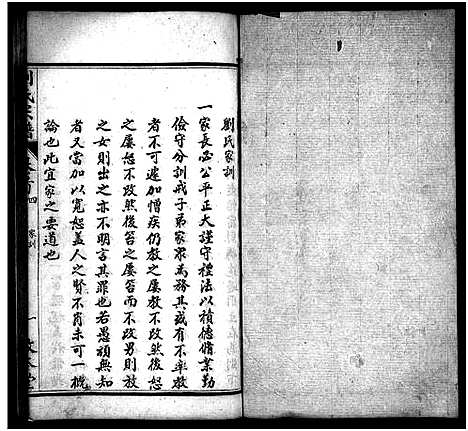 劉氏家訓
一家長必公平正大謹守禮法以積德脩業勤
儉守分訓戒子弟家眾為務其或有不率教
者不可遽加憎疾仍教之屢教不改然後怒
之屢怒不改然後笞之屢笞而不改男則放
之女則出之亦不明言其罪也若愚頑無知
者又當加以寬恕蓋人之賢不肖未可一概
論也此宜家之要道也
劉氏宗譜
家訓
一